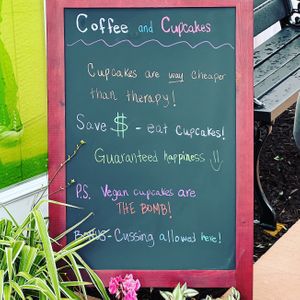 Coffee and Cupcakes
Cupcakes are way cheaper
than therapy!
Save $ - eat cupcakes!
Guaranteed happiness
P.S. Vegan cupcakes are
THE BOMB!
BONUS - Cussing allowed here!